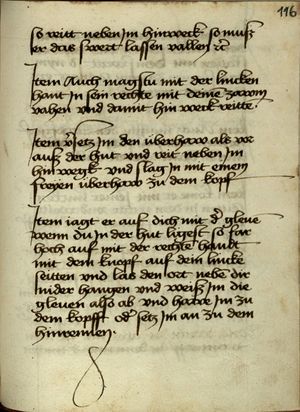 116
so reitt neben im hinweck so muß
er das swert lassen vallen etc
Item Auch magstu mit der lincken
hant in sein rechte mit deine zawm
vahen und damit hin weck reitte.
Item v'setz im den überhaw als vor
auß der hut und reit neben im
hinwegk und slag in mit einem
freyen überhaw zu dem kopf
Item jagt er auf dich mit d' gleve
wenn du in der hut ligest so far
hoch auf mit der rechte handt
mit dem knopf auf dem lincke
seitten und las den ort nebe dir
nider hangen und weiß im die
gleven also ab und haw im zu
dem kopfft od' setz im an zu dem
hinrennen.